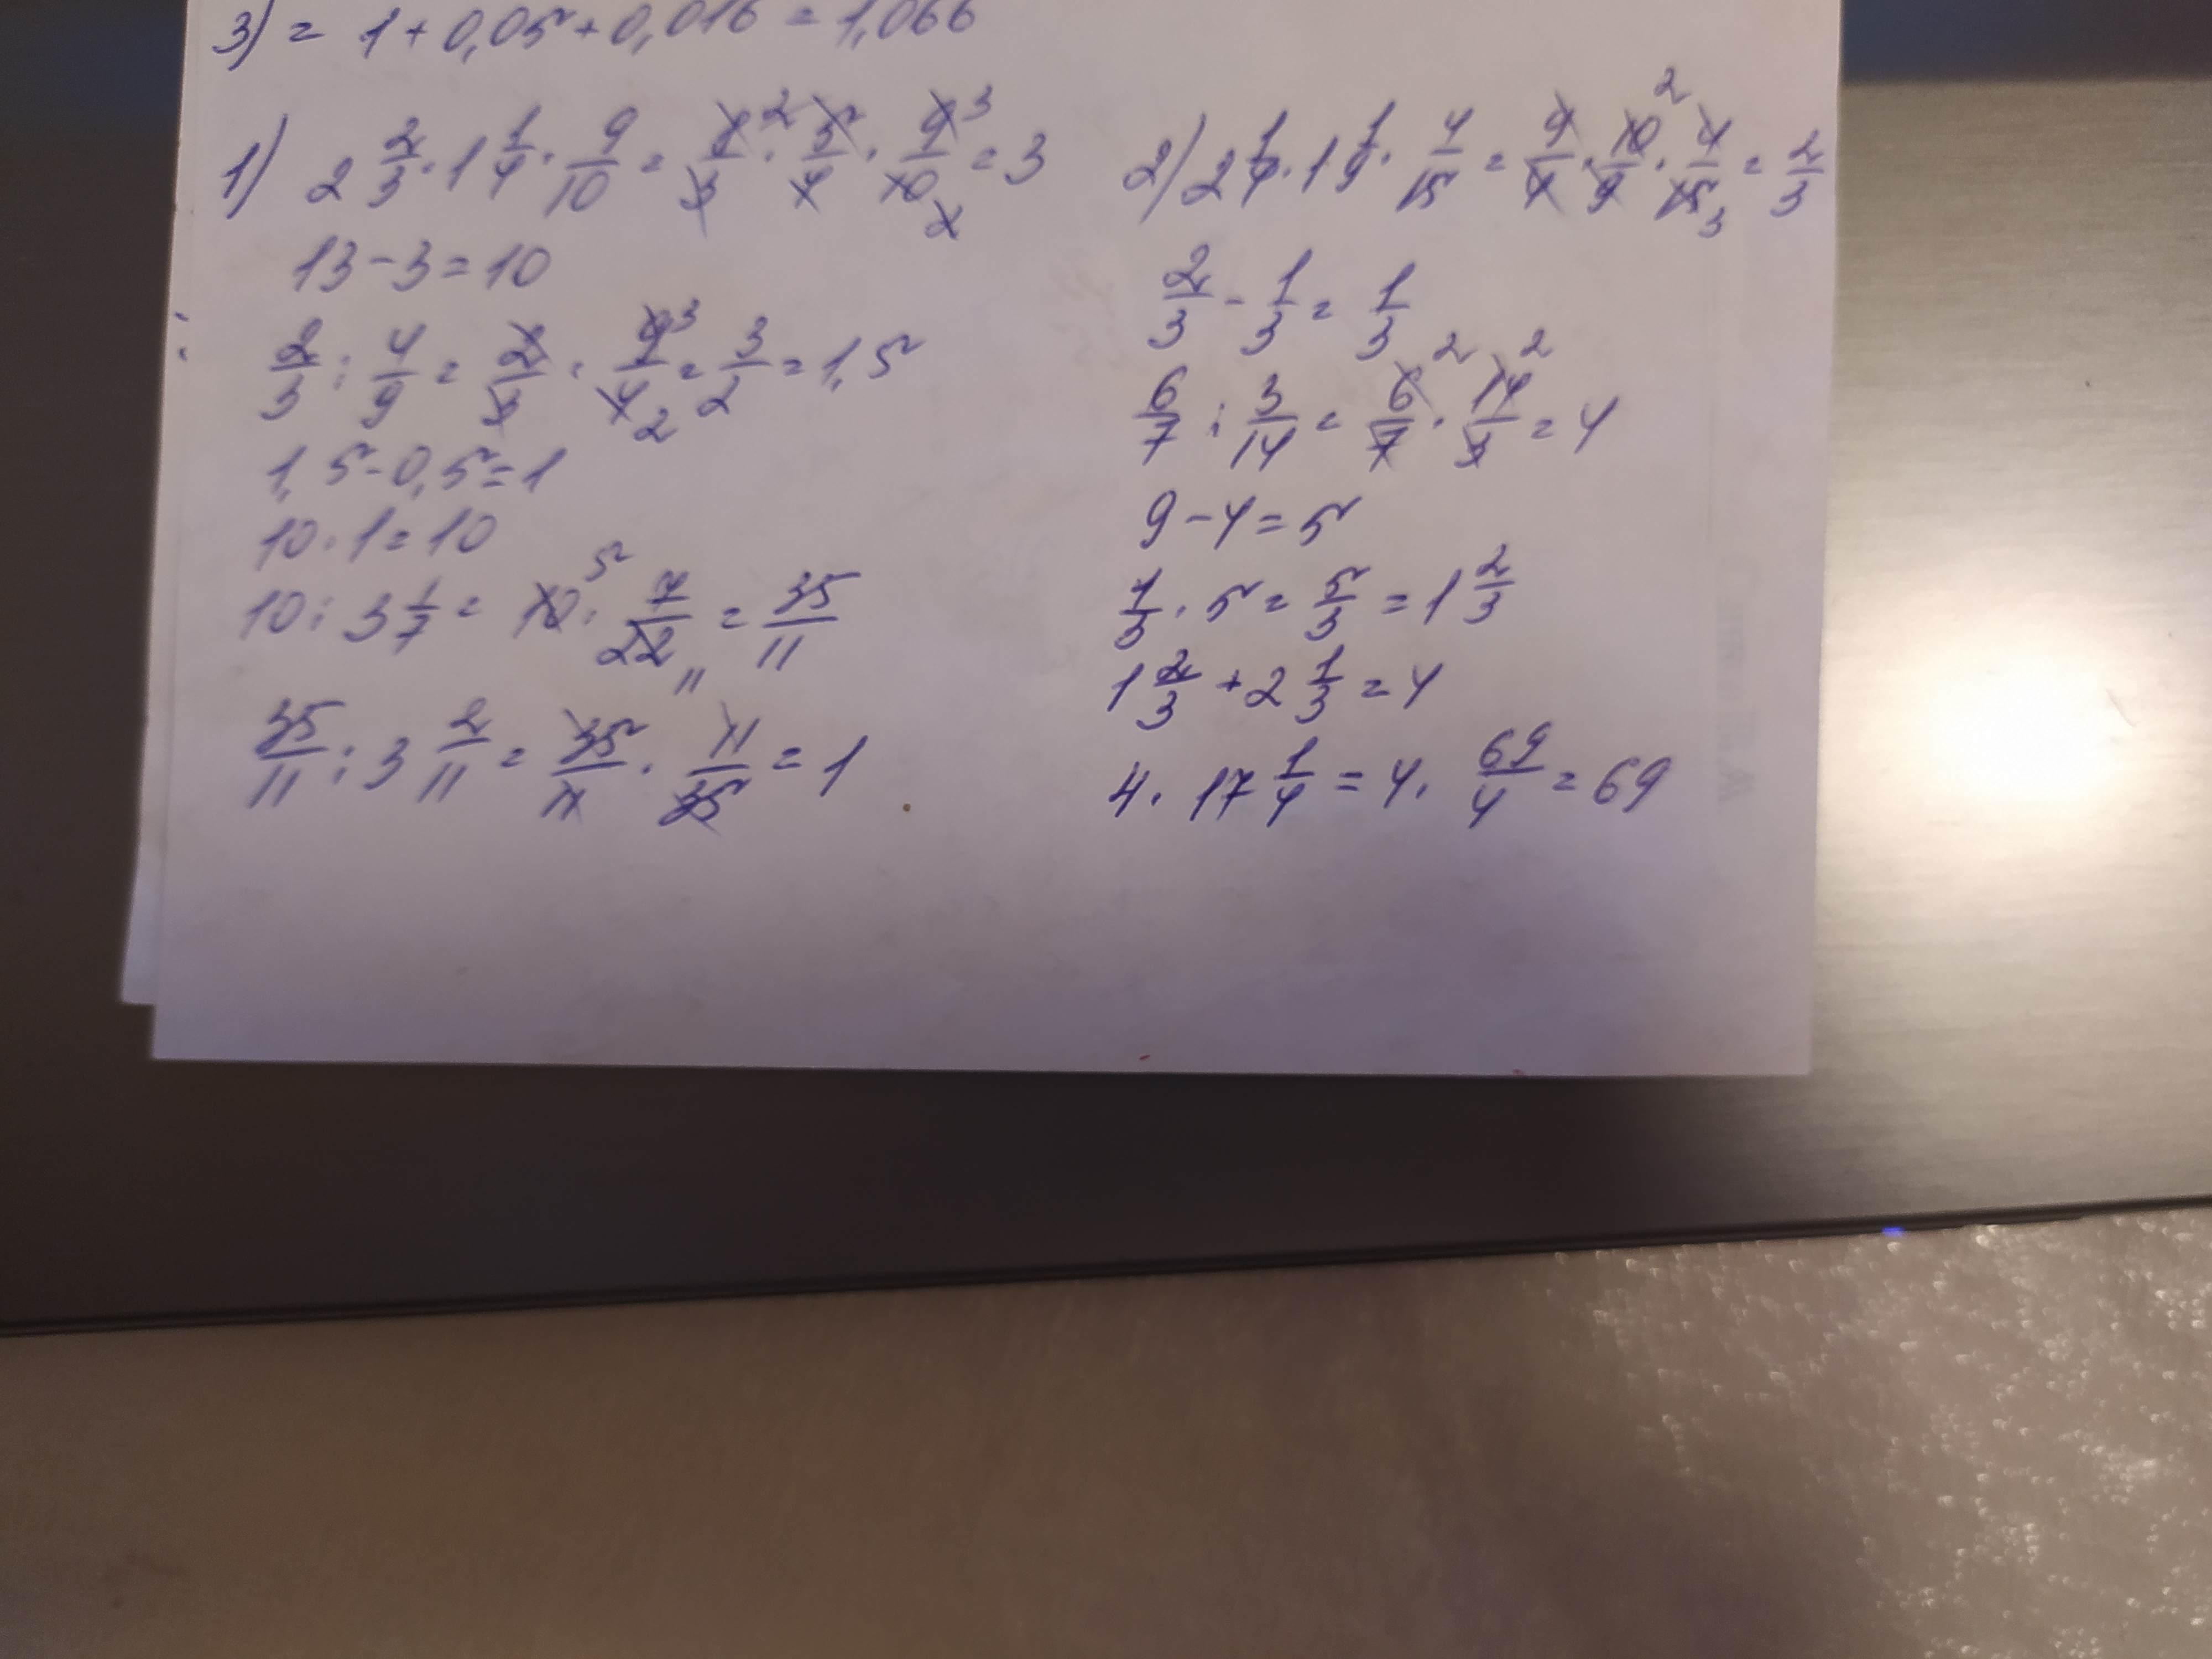 3) = 1 + 0,05 + 0,016 = 1,066
1) 2 2/3 · 1 1/4 · 9/10 = 8/3 ² · 5/4 · 9/10 ³ ₂ = 3
13 - 3 = 10
2/3 : 4/9 = 2/3 · 9/4 ³ ₂ = 3/2 = 1,5
1,5 - 0,5 = 1
10 · 1 = 10
10 : 3 1/7 = 10 ⁵ · 7/22 ₁₁ = 35/11
35/11 : 3 2/11 = 35/11 · 11/35 = 1
2) 2 1/4 · 1 1/9 · 4/15 = 9/4 · 10/9 ² · 4/15 ₃ = 2/3
2/3 - 1/3 = 1/3
6/7 : 3/14 = 6/7 ² · 14/3 ² = 4
9 - 4 = 5
1/3 · 5 = 5/3 = 1 2/3
1 2/3 + 2 1/3 = 4
4 · 17 1/4 = 4 · 69/4 = 69